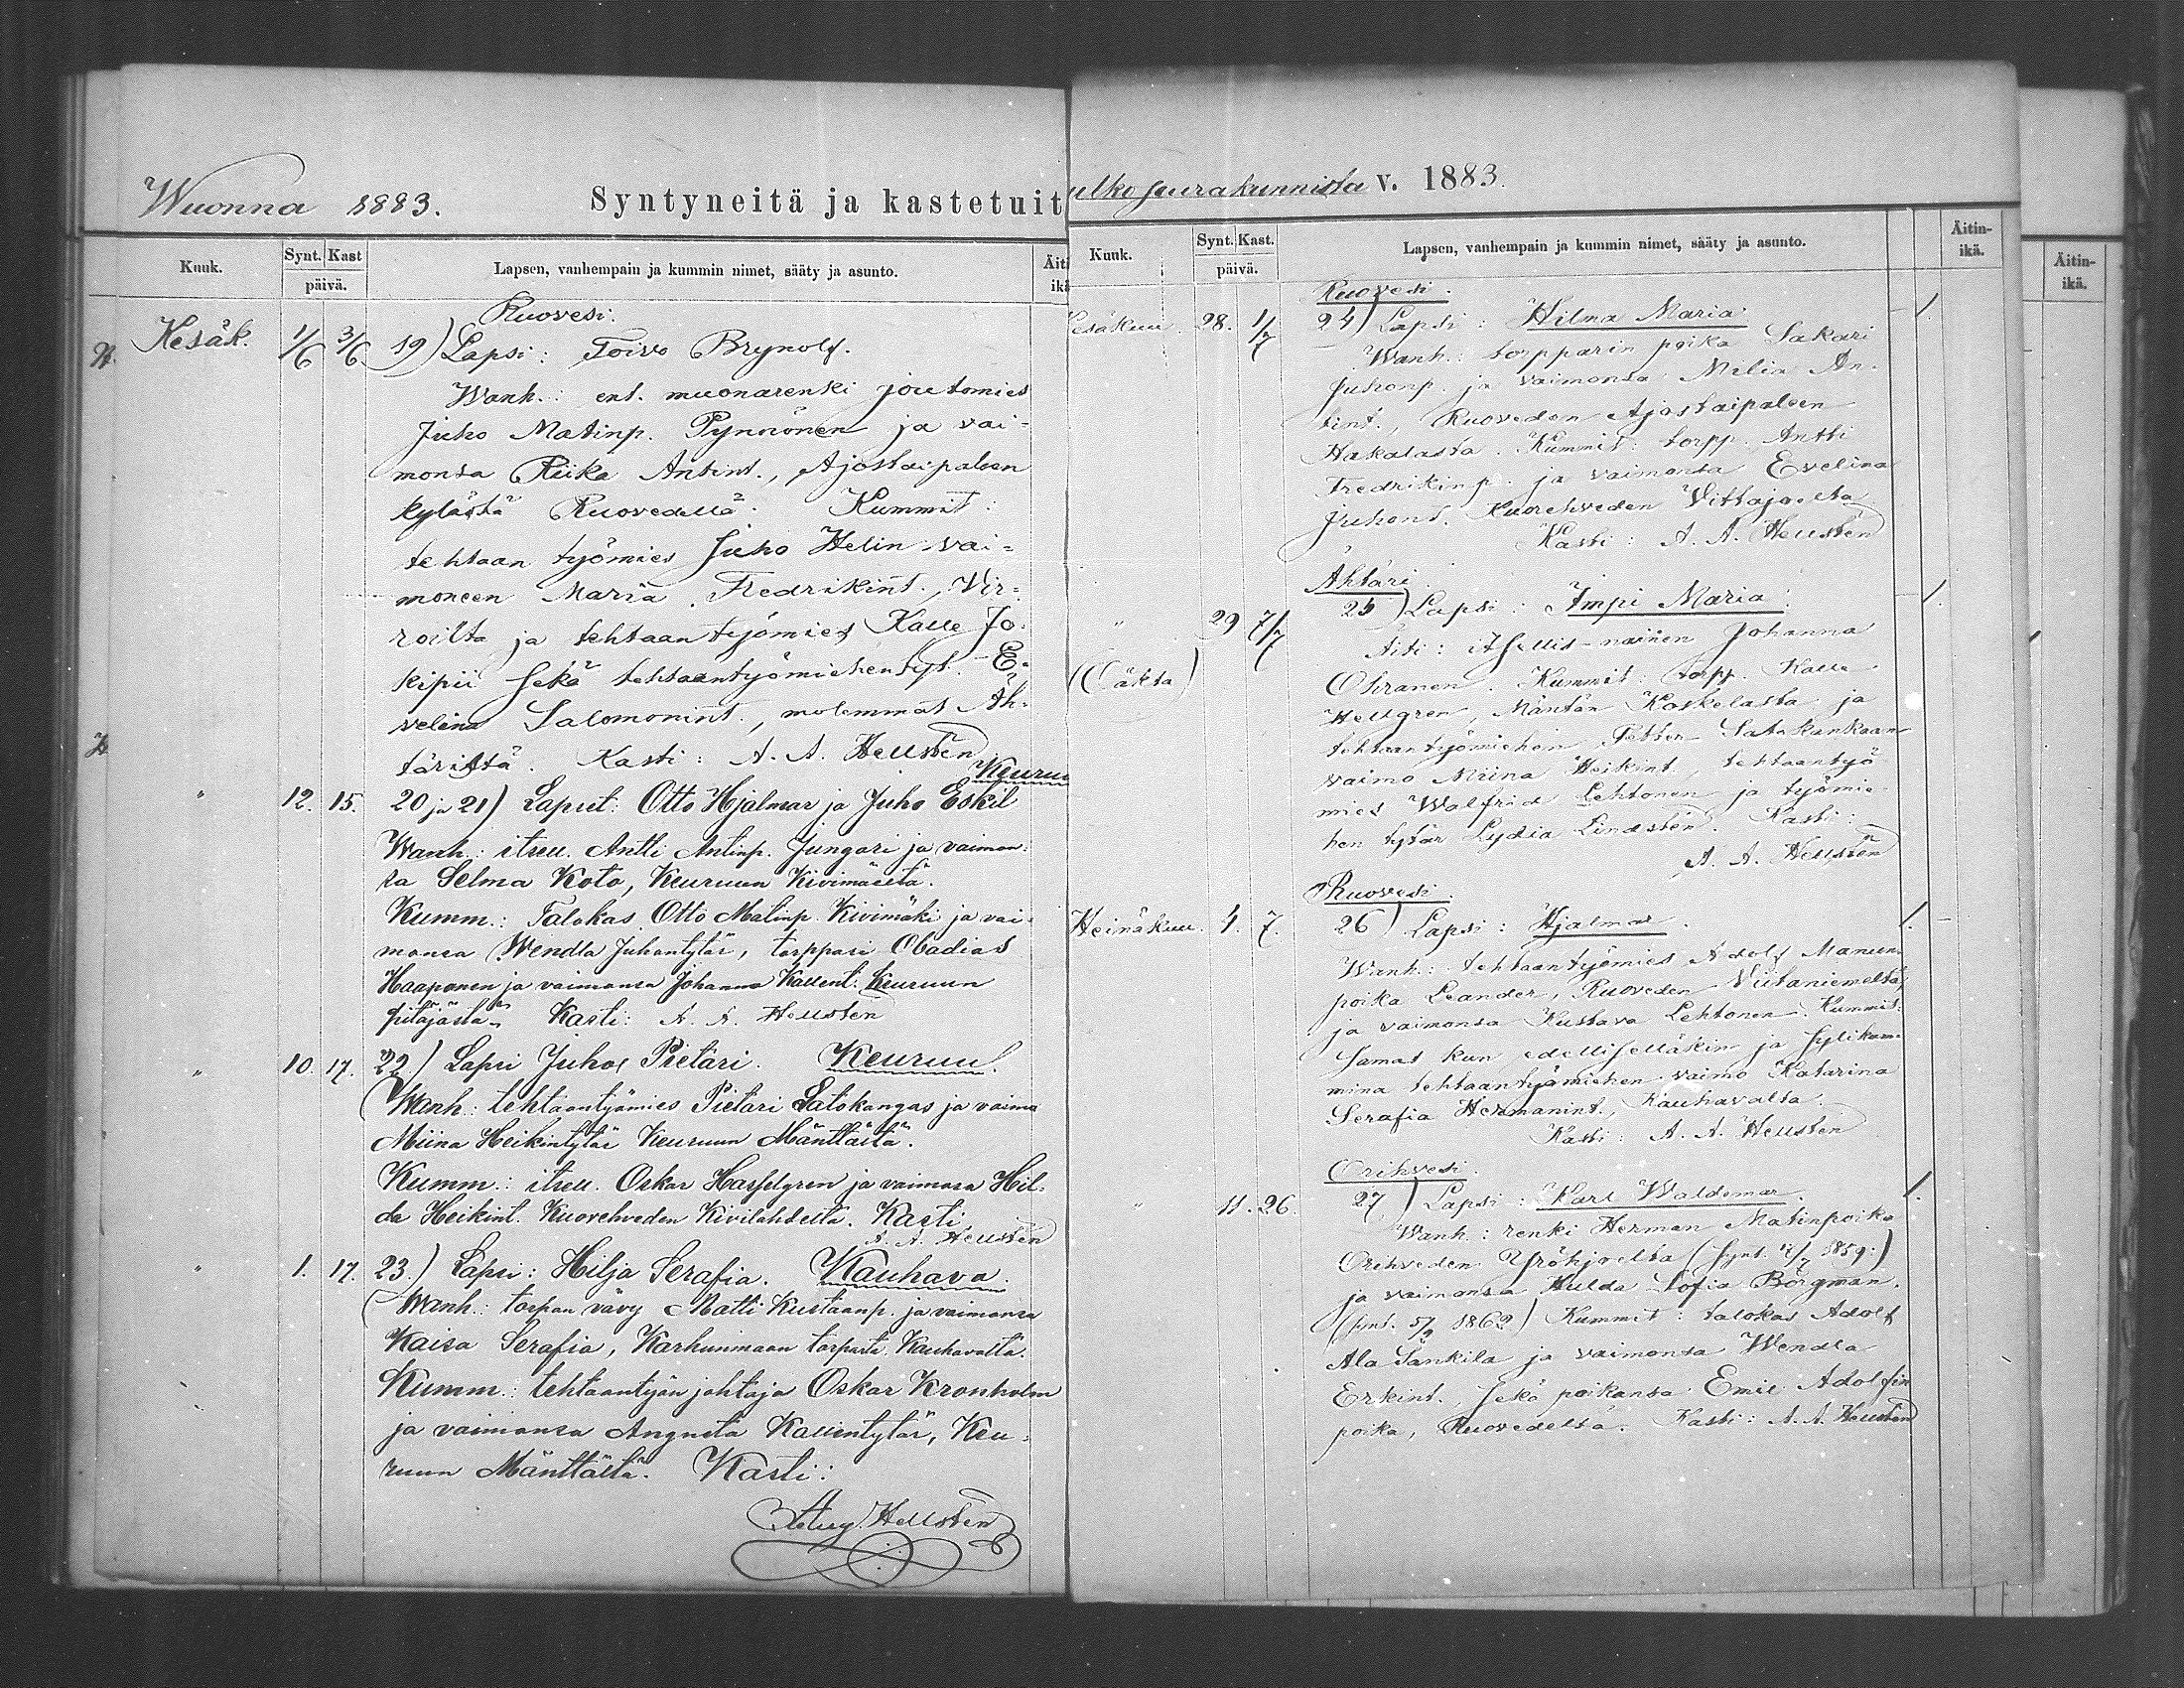 Wuonna 1883. Syntyneitä ja kastetuit
Kuuk. Synt. Kast päivä. Lapsen, vanhempain ja kummin nimet, sääty ja asunto. Äiti ikä
Ruovesi.
Kesäk. 1/6 3/6 19) Lapsi: Toivo Brynolf.
Wanh.: ent. muonarenki joutomies
Juho Matinp. Pynnönen ja vai-
monsa Riika Antint., Ajostaipaleen
kylästä Ruovedellä. Kummit:
tehtaan työmies Juho Helin vai-
moneen Maria Fredrikint., Vir-
roilta ja tehtaantyömies Kalle Jo-
kipii sekä tehtaantyömiehen tyt. E-
velina Salomonint., molemmat Äh-
täristä. Kasti: A. A. Hellstén
Keuruu
" 12. 15. 20 ja 21) Lapset: Otto Hjalmar ja Juho Eskil
Wanh.: itsell. Antti Antinp. Jungari ja vaimon-
sa Selma Koto, Keuruun Kivimäeltä.
Kumm.: Talokas Otto Matinp. Kivimäki ja vai-
monsa Wendla Juhantytär, torppari Obadias
Haaponen ja vaimonsa Johanna Kallent. Keuruun
pitäjästä. Kasti: A. A. Hellsten
" 10. 17. 22.) Lapsi Juho Pietari. Keuruu.
Wanh.: tehtaantyömies Pietari Satokangas ja vaimo
Miina Heikintytär Keuruun Mänttästä.
Kumm.: itsell. Oskar Hasselgren ja vaimonsa Hil-
da Heikint. Kuorehveden Kivilahdelta. Kasti
A. A. Hellstén
" 1. 17. 23.) Lapsi: Hilja Serafia. Kauhava.
Wanh.: torpan vävy Matti Kustaanp. ja vaimonsa
Kaisa Serafia, Karhunmaan torpasta Kauhavalta.
Kumm.: tehtaantyön johtaja Oskar Kronholm
ja vaimonsa Angneta Kallentytär, Keu-
ruun Mänttästä. Kasti:
Aug. Hellstén
ulkoseurakunnista v. 1883.
Kuuk. Synt. Kast. päivä. Lapsen, vanhempain ja kummin nimet, sääty ja asunto. Äitin-ikä.
Äitin-ikä.
Ruovesi.
Kesäkuu. 28. 1/7 24) Lapsi: Hilma Maria 1.
Wanh.: torpparin poika Sakari
Juhonp. ja vaimonsa Milia An-
tint., Ruoveden Ajostaipaleen
Hakalasta. Kummit: torpp. Antti
Fredrikinp. ja vaimonsa Evelina
Juhont. Kuorehveden Vittajoelta
Kasti: A. A. Hellstén
Ähtäri.
" 29 7/7 25) Lapsi: Impi Maria. 1.
Äiti: itsellis-nainen Johanna
Ohranen. Kummit: torpp. Kalle
Hellgren, Mäntän Koskelasta ja
tehtaantyömiehen Petter Satokankaan
vaimo Miina Heikint. tehtaantyö-
mies Walfrid Lehtonen ja työmie-
hen tytär Lydia Lindstén. Kasti:
A. A. Hellstén
Ruovesi.
Heinäkuu. 4. 7. 26) Lapsi: Hjalmar. 1.
Wanh.: tehtaantyömies Adolf Manun-
poika Leander, Ruoveden Viitaniemeltä,
ja vaimonsa Kustava Lehtonen. Kummit:
Samat kun edellisellakin ja sylikum-
mina tehtaantyömiehen vaimo Katarina
Serafia Hermanint., Kauhavalta.
Kasti: A. A. Hellsten
Orihvesi.
" 11. 26. 27) Lapsi: Karl Waldemar. 1.
Wanh.: renki Herman Matinpoika
Orihveden Yröhjoelta (synt. 17/7 1859.)
ja vaimonsa Hulda Sofia Börgman.
(synt. 5/9 1862) Kummit: talokas Adolf
Ala Sankila ja vaimonsa Wendla
Erkint. sekä poikansa Emil Adolfin
poika, Ruovedeltä. Kasti: A. A. Hellstén